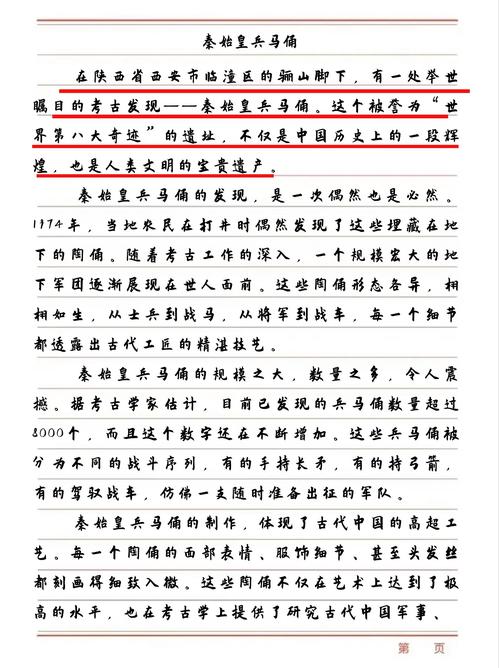 秦始皇兵马俑
在陕西省西安市临潼区的骊山脚下，有一处举世
瞩目的考古发现——秦始皇兵马俑。这个被誉为“世
界第八大奇迹”的遗址，不仅是中国历史上的一段辉
煌，也是人类文明的宝贵遗产。
秦始皇兵马俑的发现，是一次偶然也是必然。
1974年，当地农民在打井时偶然发现了这些埋藏在地
下的陶俑。随着考古工作的深入，一个规模宏大的地
下军团逐渐展现在世人面前。这些陶俑形态各异，栩
栩如生，从士兵到战马，从将军到战车，每一个细节
都透露出古代工匠的精湛技艺。
秦始皇兵马俑的规模之大，数量之多，令人震
撼。据考古学家估计，目前已发现的兵马俑数量超过
8000个，而且这个数字还在不断增加。这些兵马俑被
分为不同的战斗序列，有的手持长矛，有的持弓箭，
有的驾驭战车，仿佛一支随时准备出征的军队。
秦始皇兵马俑的制作，体现了古代中国的高超工
艺。每一个陶俑的面部表情、服饰细节、甚至头发丝
都刻画得细致入微。这些陶俑不仅在艺术上达到了极
高的水平，也在考古学上提供了研究古代中国军事、
第 页